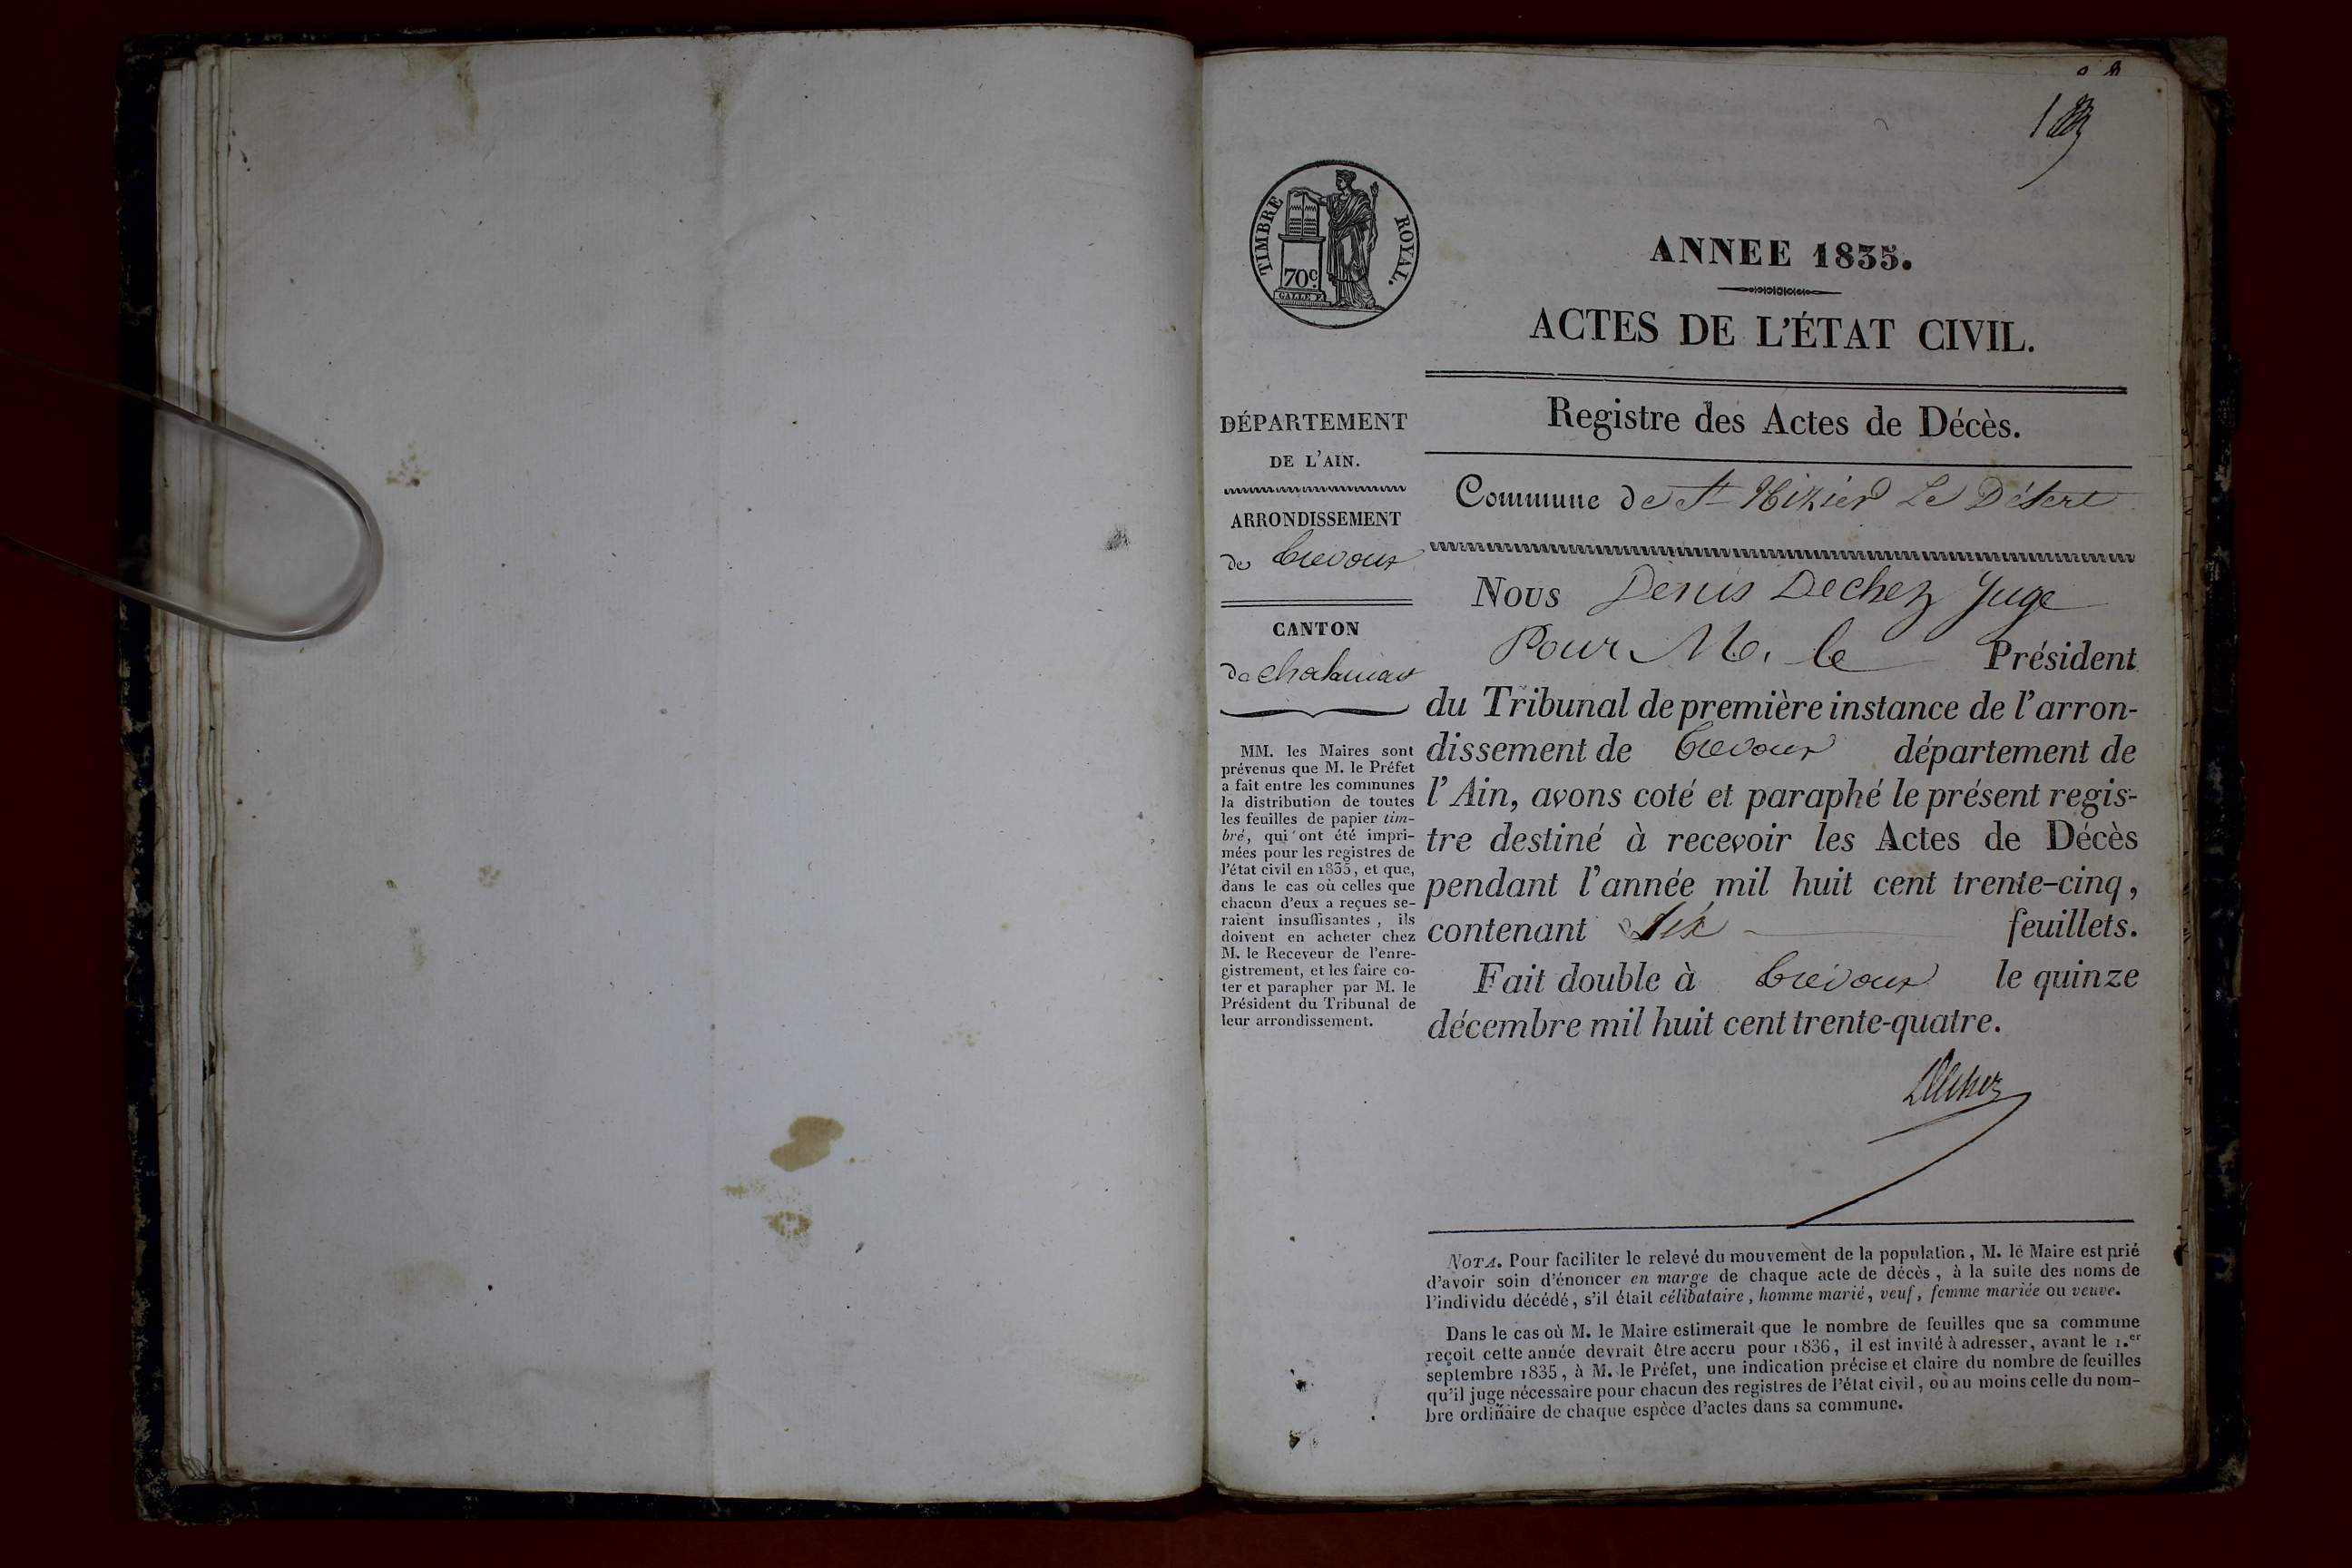 TIMBRE ROYAL.
70c.
ANNEE 1835.
ACTES DE L'ÉTAT CIVIL.
Registre des Actes de Décès.
Commune de St Nizier Le Désert
DÉPARTEMENT
DE L'AIN.
ARRONDISSEMENT
de Trevoux
CANTON
de chalamont
MM. les Maires sont
prévenus que M. le Préfet
a fait entre les communes
la distribution de toutes
les feuilles de papier tim-
bré, qui ont été impri-
mées pour les registres de
l'état civil en 1835, et que,
dans le cas où celles que
chacun d'eux a reçues se-
raient insuffisantes, ils
doivent en acheter chez
M. le Receveur de l'enre-
gistrement, et les faire co-
ter et parapher par M. le
Président du Tribunal de
leur arrondissement.
Nous Denis Dechez Juge
Pour M. le Président
du Tribunal de première instance de l'arron-
dissement de Trevoux département de
l'Ain, avons coté et paraphé le présent regis-
tre destiné à recevoir les Actes de Décès
pendant l'année mil huit cent trente-cinq,
contenant six feuillets.
Fait double à Trévoux le quinze
décembre mil huit cent trente-quatre.
Dechez
NOTA. Pour faciliter le relevé du mouvement de la population, M. le Maire est prié
d'avoir soin d'énoncer en marge de chaque acte de décès, à la suite des noms de
l'individu décédé, s'il était célibataire, homme marié, veuf, femme mariée ou veuve.
Dans le cas où M. le Maire estimerait que le nombre de feuilles que sa commune
reçoit cette année devrait être accru pour 1836, il est invité à adresser, avant le 1.er
septembre 1835, à M. le Préfet, une indication précise et claire du nombre de feuilles
qu'il juge nécessaire pour chacun des registres de l'état civil, où au moins celle du nom-
bre ordinaire de chaque espèce d'actes dans sa commune.